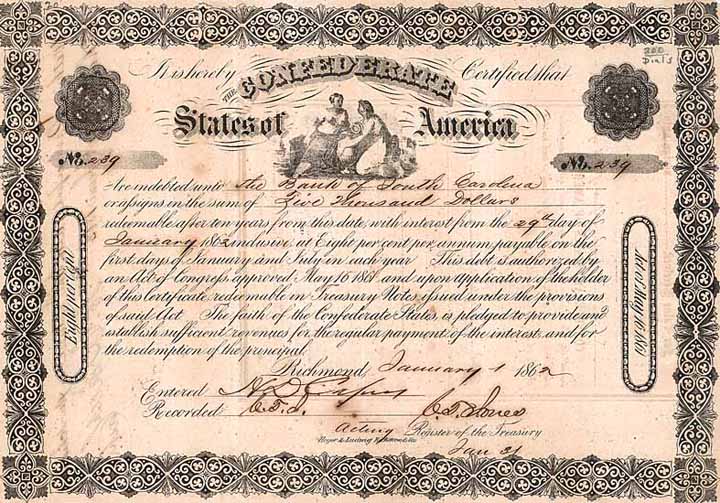 It is hereby THE CONFEDERATE Certified that
States of America
No. 239 No. 239
Are indebted unto the Bank of South Carolina
or assigns in the sum of Five Thousand Dollars
redeemable after ten years from this date, with interest from the 29th day of
January 1862 inclusive, at Eight per cent per annum, payable on the
first days of January and July in each year This debt is authorized by
an Act of Congress approved May 16 1861 and upon application of the holder
of this Certificate redeemable in Treasury Notes issued under the provisions
of said Act. The faith of the Confederate States is pledged to provide and
establish sufficient revenues for the regular payment of the interest, and for
the redemption of the principal.
Richmond January 1 1862
Entered
Recorded C.T.J. C. T. Jones
Acting Register of the Treasury
Hoyer & Ludwig Richmond Va
Jan 31
Eight per cent
Act of May 16 1861
200